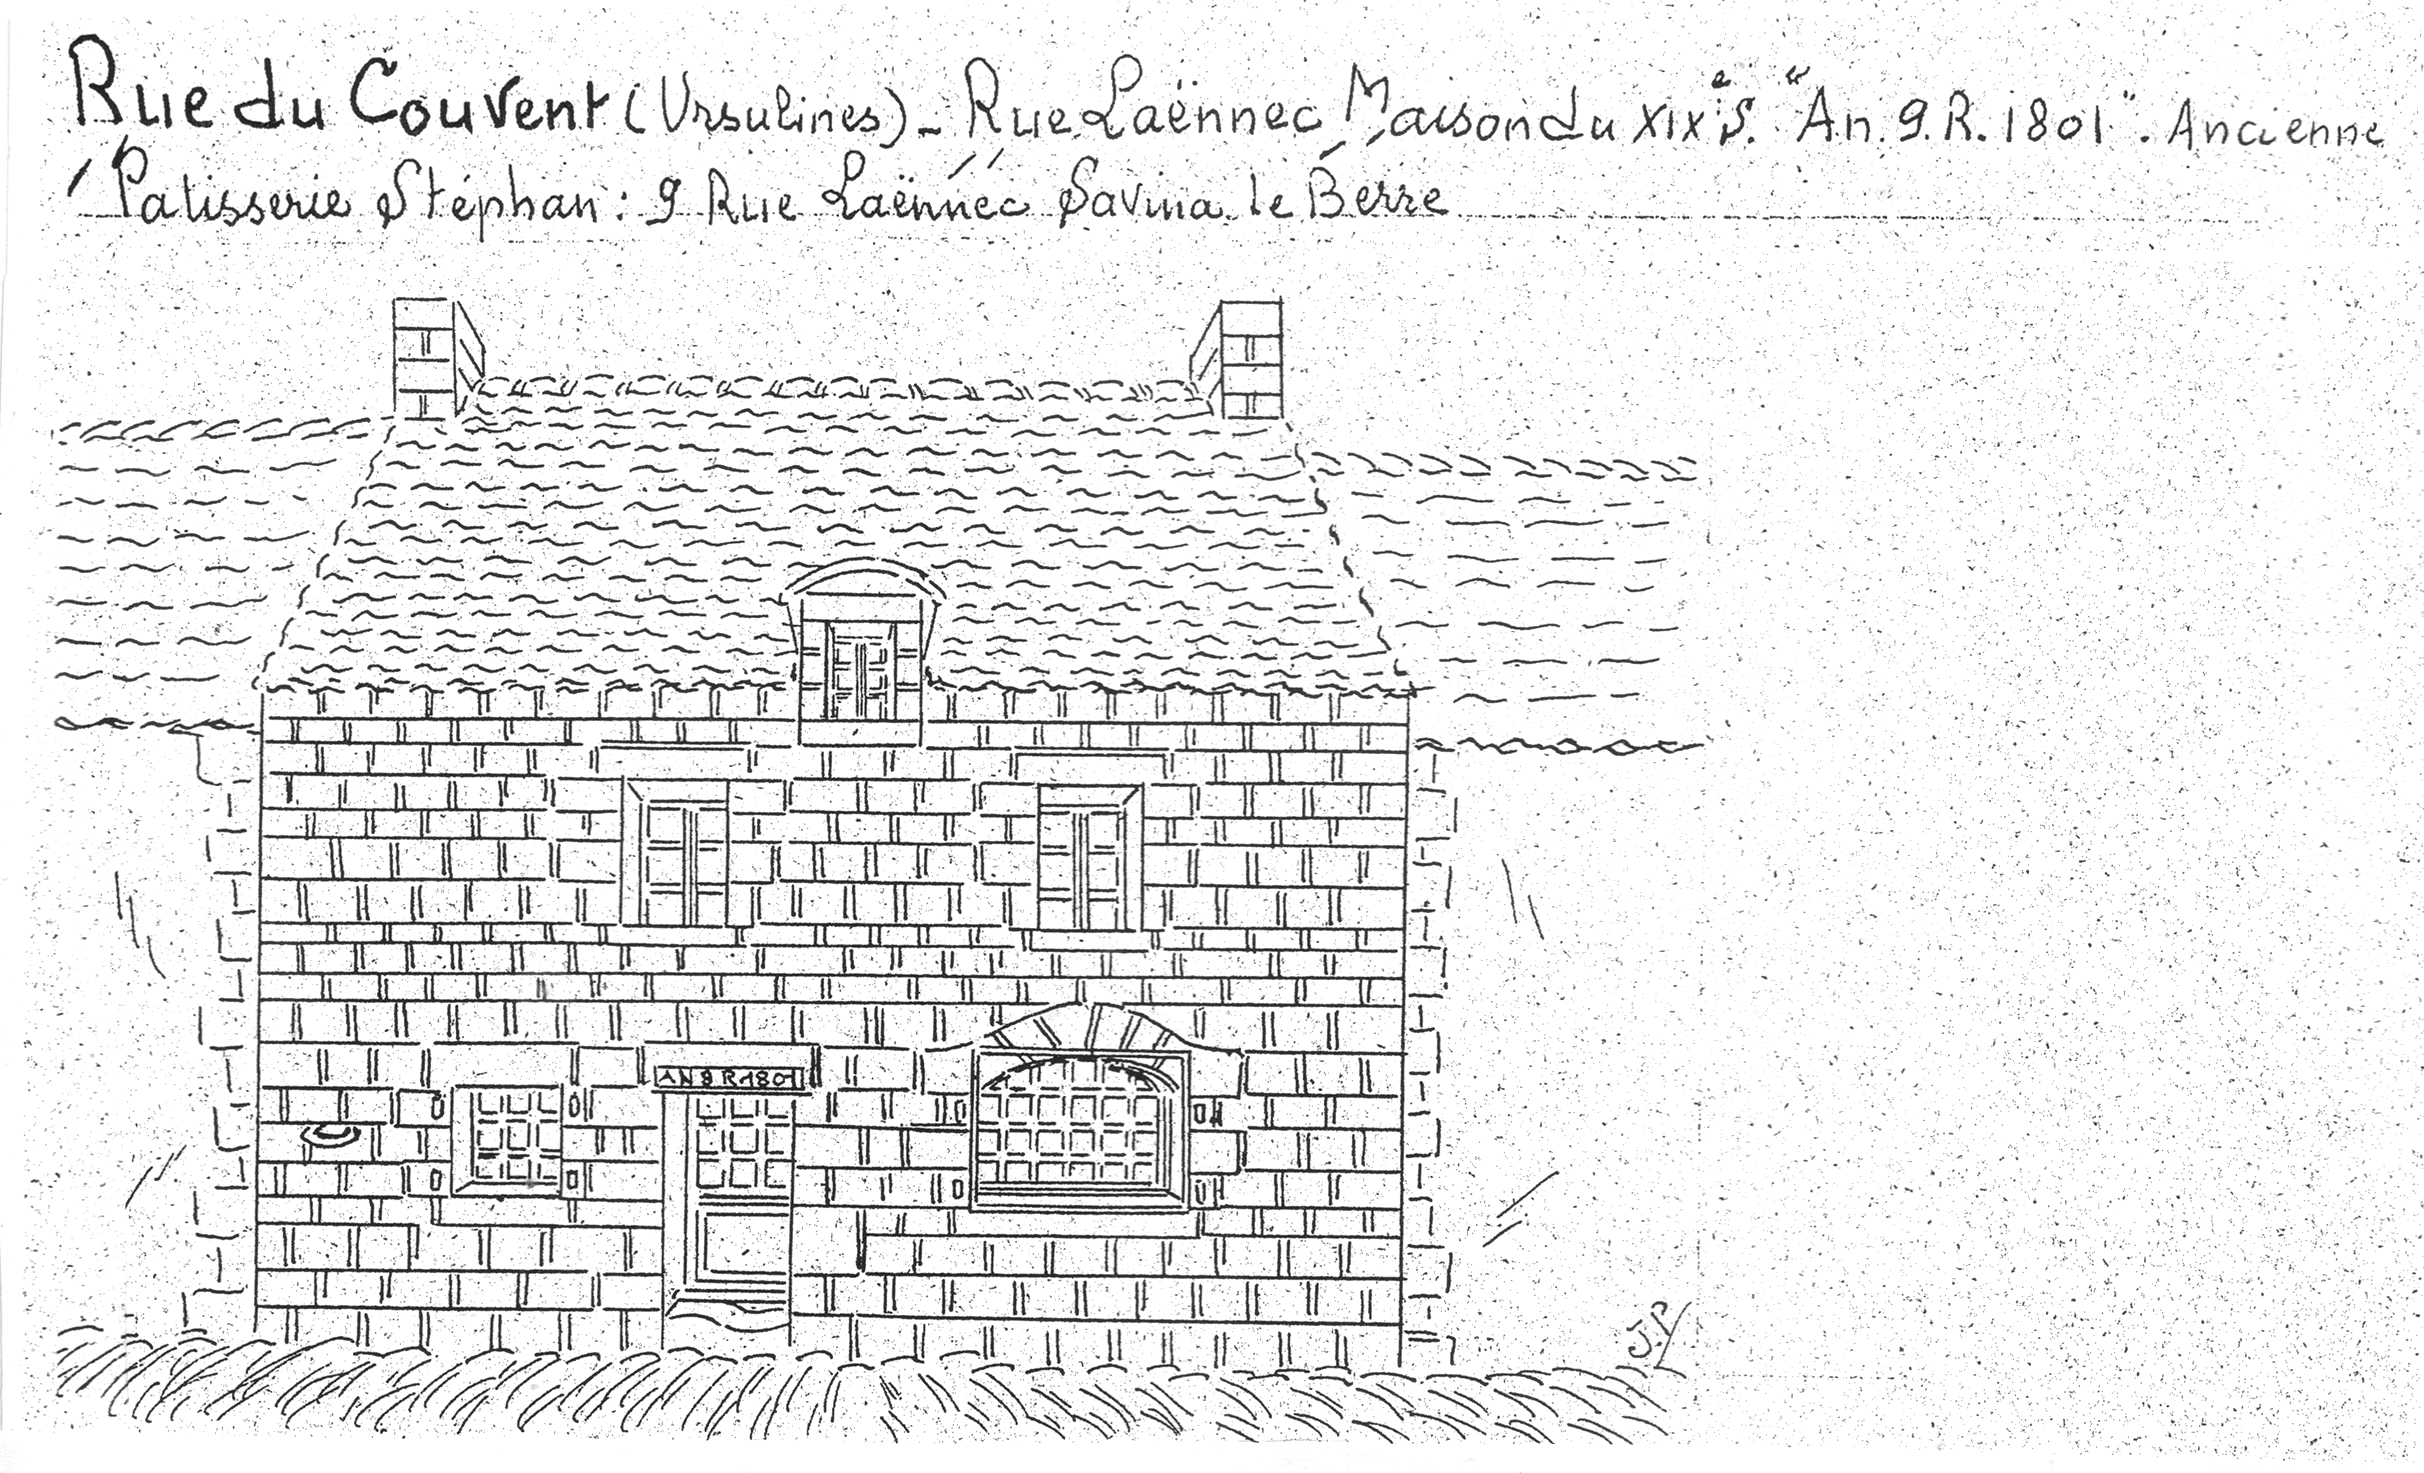 Rue du Couvent (Ursulines) - Rue Laënnec Maison du XIXe S. "An. 9. R. 1801". Ancienne
Patisserie Stéphan : 9 Rue Laënnec Savina le Berre
AN 9 R 1801
J.P